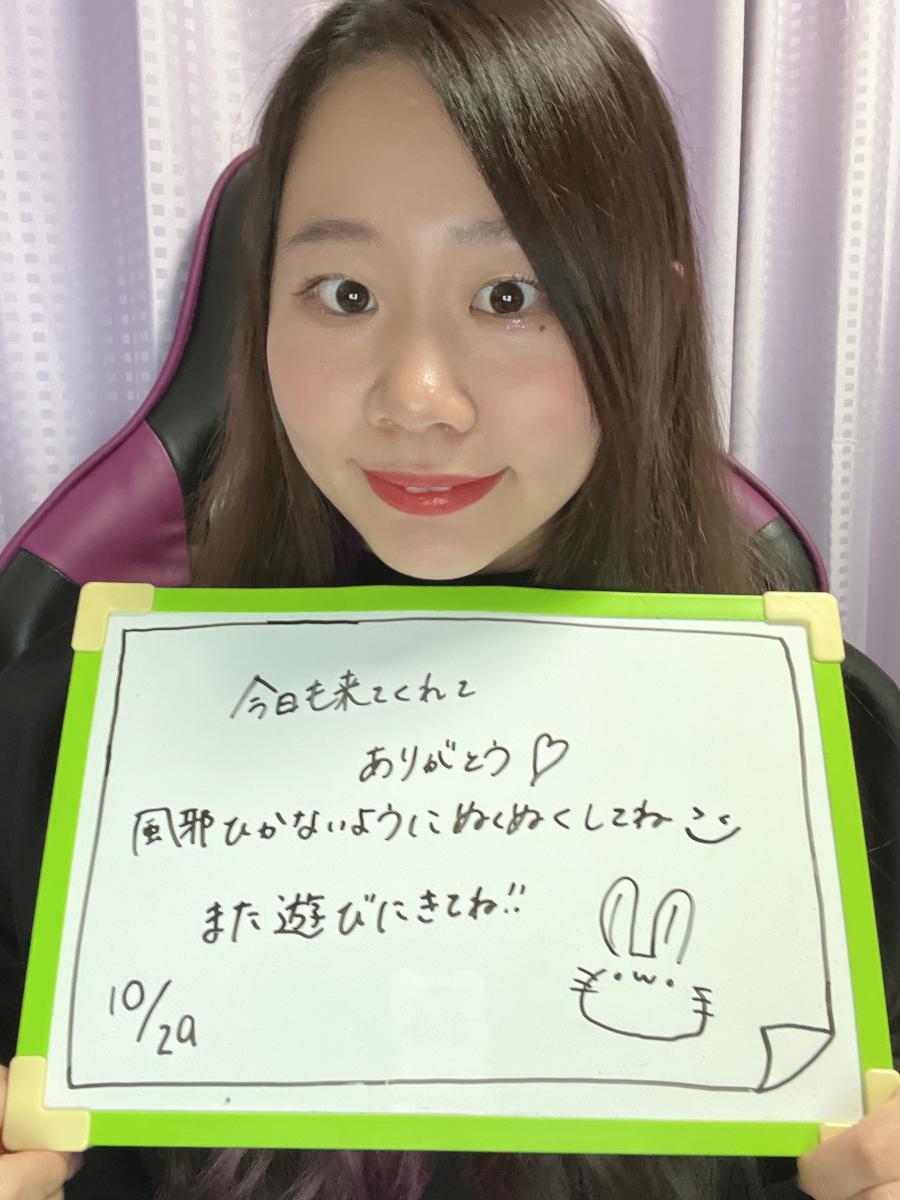 今日も来てくれて
ありがとう♡
風邪ひかないようにぬくぬくしてね
また遊びにきてね!!
10/29